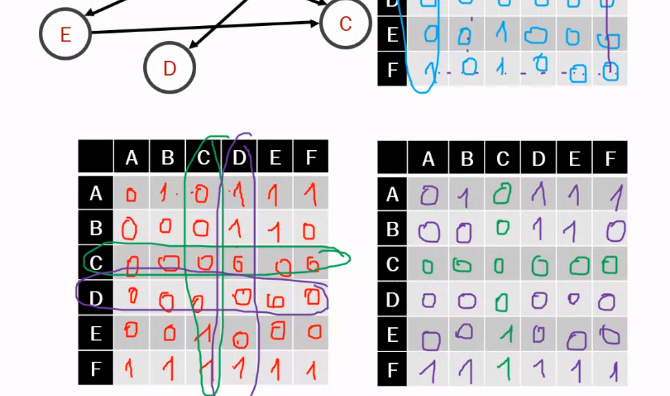 C
E
D
E 0 0 1 0 0 0
F 1 0 1 0 0 0
A B C D E F
A 0 1 0 1 1 1
B 0 0 0 1 1 0
C 0 0 0 0 0 0
D 0 0 0 0 0 0
E 0 0 1 0 0 0
F 1 1 1 1 1 1
A B C D E F
A 0 1 0 1 1 1
B 0 0 0 1 1 0
C 0 0 0 0 0 0
D 0 0 0 0 0 0
E 0 0 1 0 0 0
F 1 1 1 1 1 1